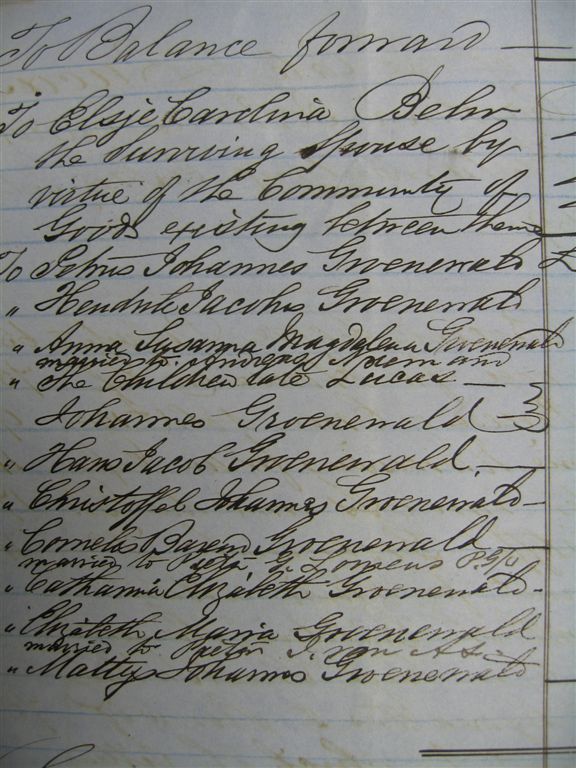 To Balance forward —
To Elsje Carolina Behr
the Surviving Spouse by
virtue of the Community of
Goods existing between them
To Petrus Johannes Groenewald £
" Hendrik Jacobus Groenewald
" Anna Susanna Magdalena Groenewald
married to Andreas and
" The Children late Lucas —
Johannes Groenewald
" Hans Jacob Groenewald —
" Christoffel Johannes Groenewald -
" Cornelis Groenewald —
married to
" Catharina Elizabeth Groenewald -
" Elizabeth Maria Groenewald
married to J. van
" Mattys Johannes Groenewald